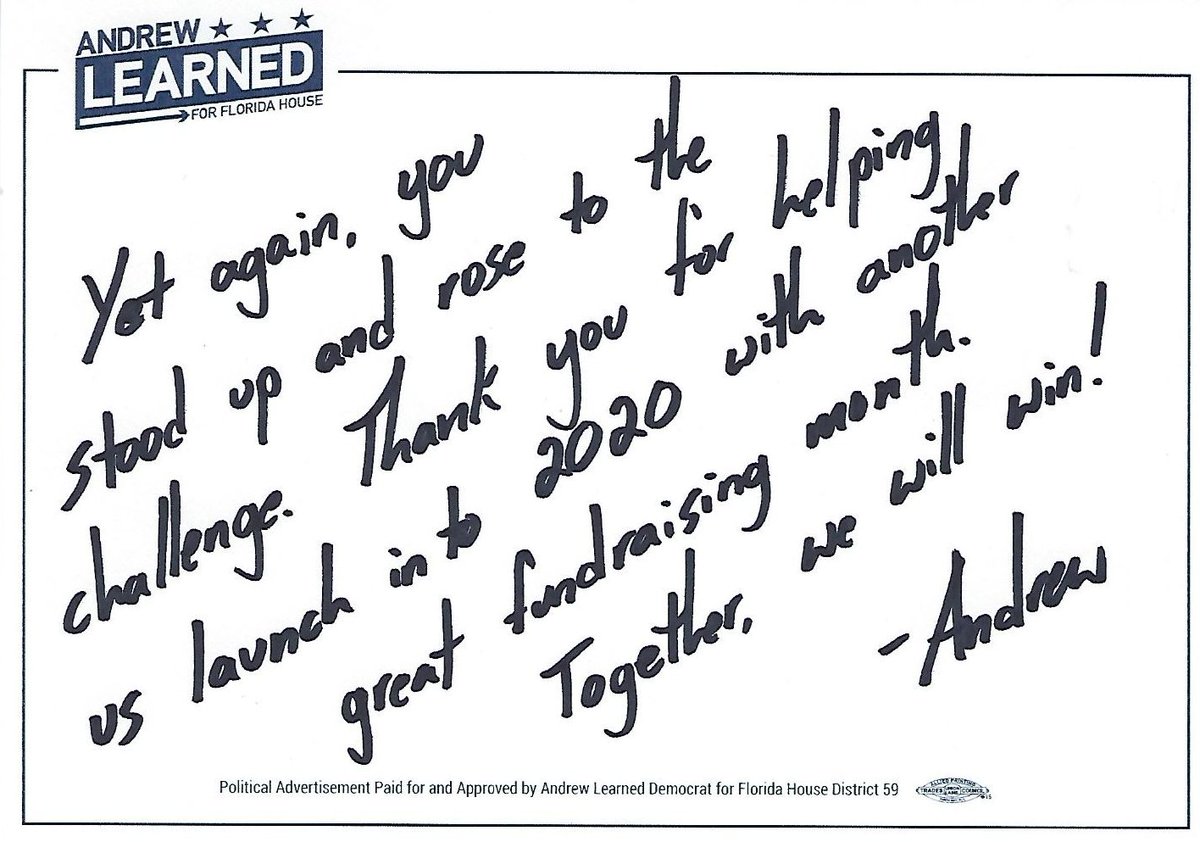 ANDREW
LEARNED
FOR FLORIDA HOUSE
Yet again, you
stood up and rose to the
challenge. Thank you for helping
us launch in to 2020 with another
great fundraising month.
Together, we will win!
-Andrew
Political Advertisement Paid for and Approved by Andrew Learned Democrat for Florida House District 59
ALLIED PRINTING
TRADES UNION LABEL COUNCIL